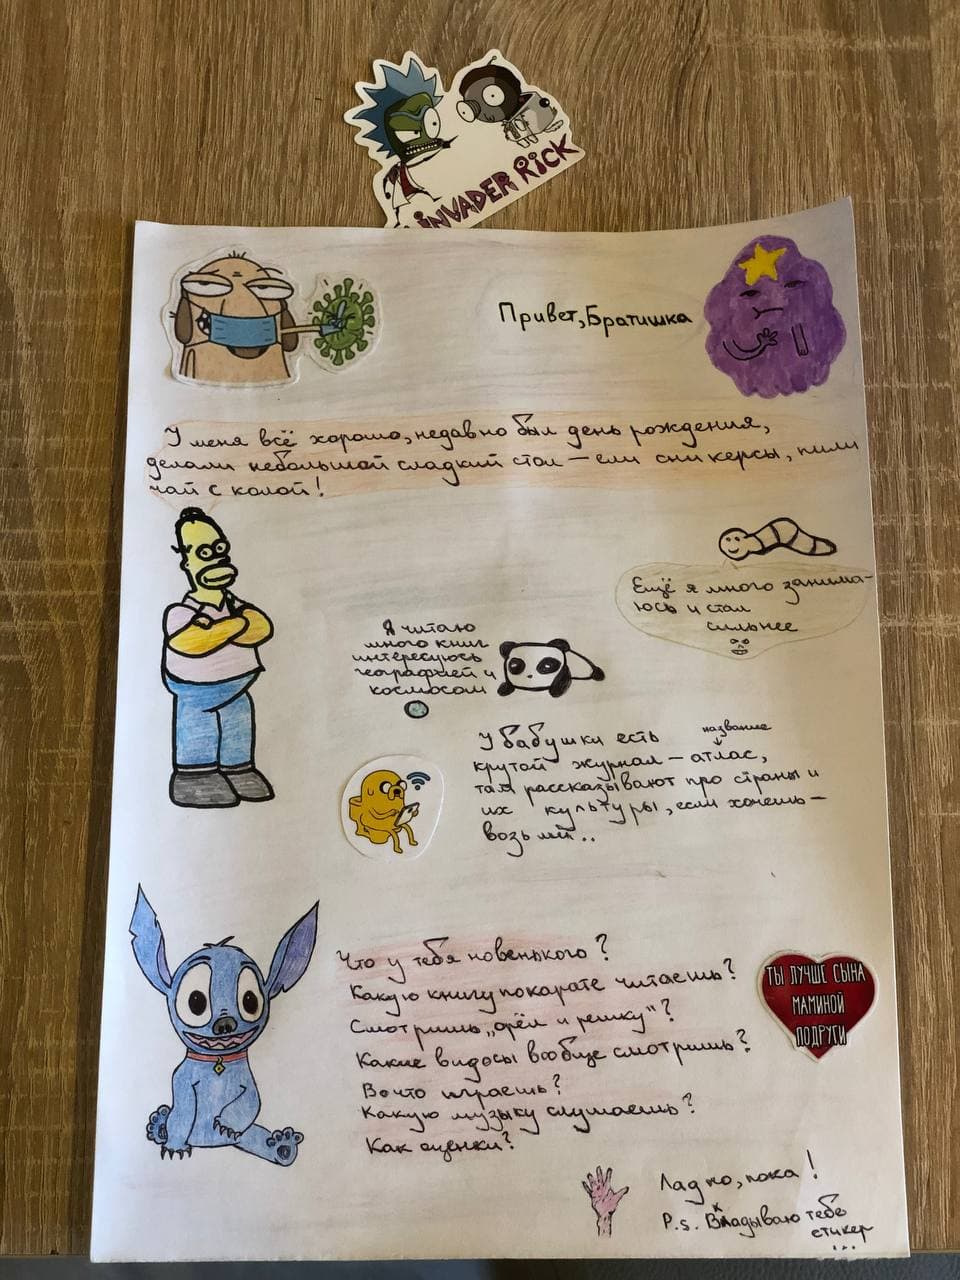 INVADER RICK
Привет, Братишка
У меня всё хорошо, недавно был день рождения,
делали небольшой сладкий стол – ели сникерсы, пили
чай с колой!
Ещё я много занима-
юсь и стал
сильнее
Я читаю
много книг
интересуюсь
географией и
космосом
название
У бабушки есть
крутой журнал – атлас,
там рассказывают про страны и
их культуры, если хочешь –
возьми..
Что у тебя новенького?
Какую книгу покарате читаешь?
Смотришь „орёл и решку"?
Какие видосы вообще смотришь?
Во что играешь?
Какую музыку слушаешь?
Как оценки?
ТЫ ЛУЧШЕ СЫНА
МАМИНОЙ
ПОДРУГИ
Ладно, пока!
P.s. Вкладываю тебе
стикер
...